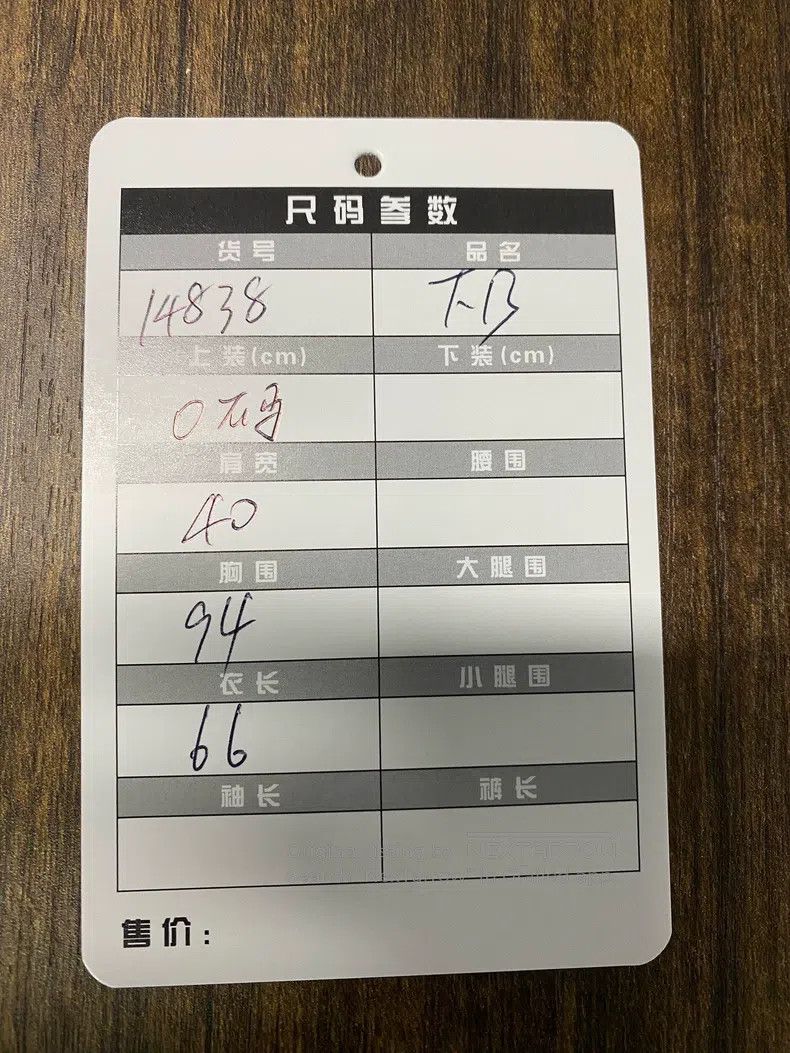 尺码参数
货号 品名
14838
上装(cm) 下装(cm)
0 码
肩宽 腰围
40
胸围 大腿围
94
衣长 小腿围
66
袖长 裤长
售价: